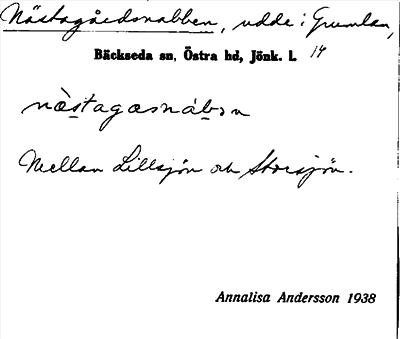 Nästagårdsnabben, udde i Grumlan,
Bäckseda sn, Östra hd, Jönk. l. 14
næstagasnábən
Mellan Lillsjön och Storsjön.
Annalisa Andersson 1938